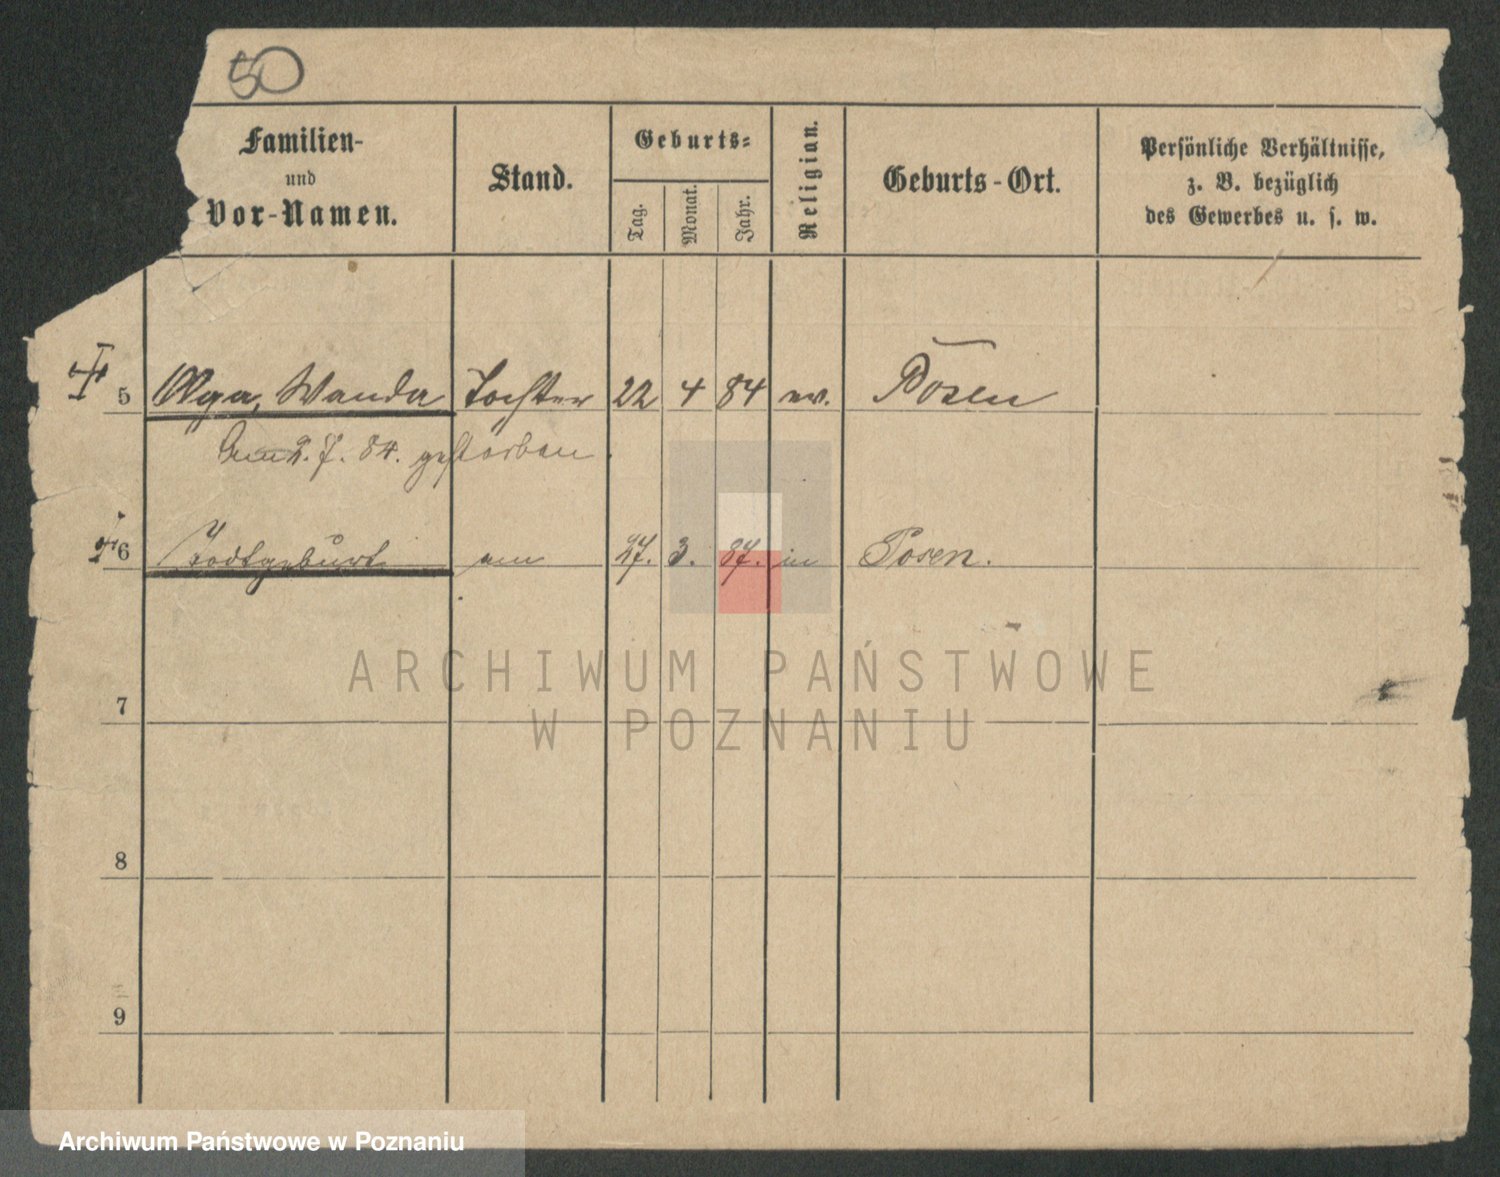 50
Familien-
und
Vor-Namen.
Stand.
Geburts-
Tag.
Monat.
Jahr.
Religian.
Geburts-Ort.
Persönliche Verhältnisse,
z. B. bezüglich
des Gewerbes u. s. w.
5 Olga, Wanda Tochter 22 4 84 ev. Posen
Am 2. 7. 84. gestorben.
6 Todtgeburt am 27. 3. 87. in Posen.
7
8
9
ARCHIWUM PAŃSTWOWE
W POZNANIU
Archiwum Państwowe w Poznaniu